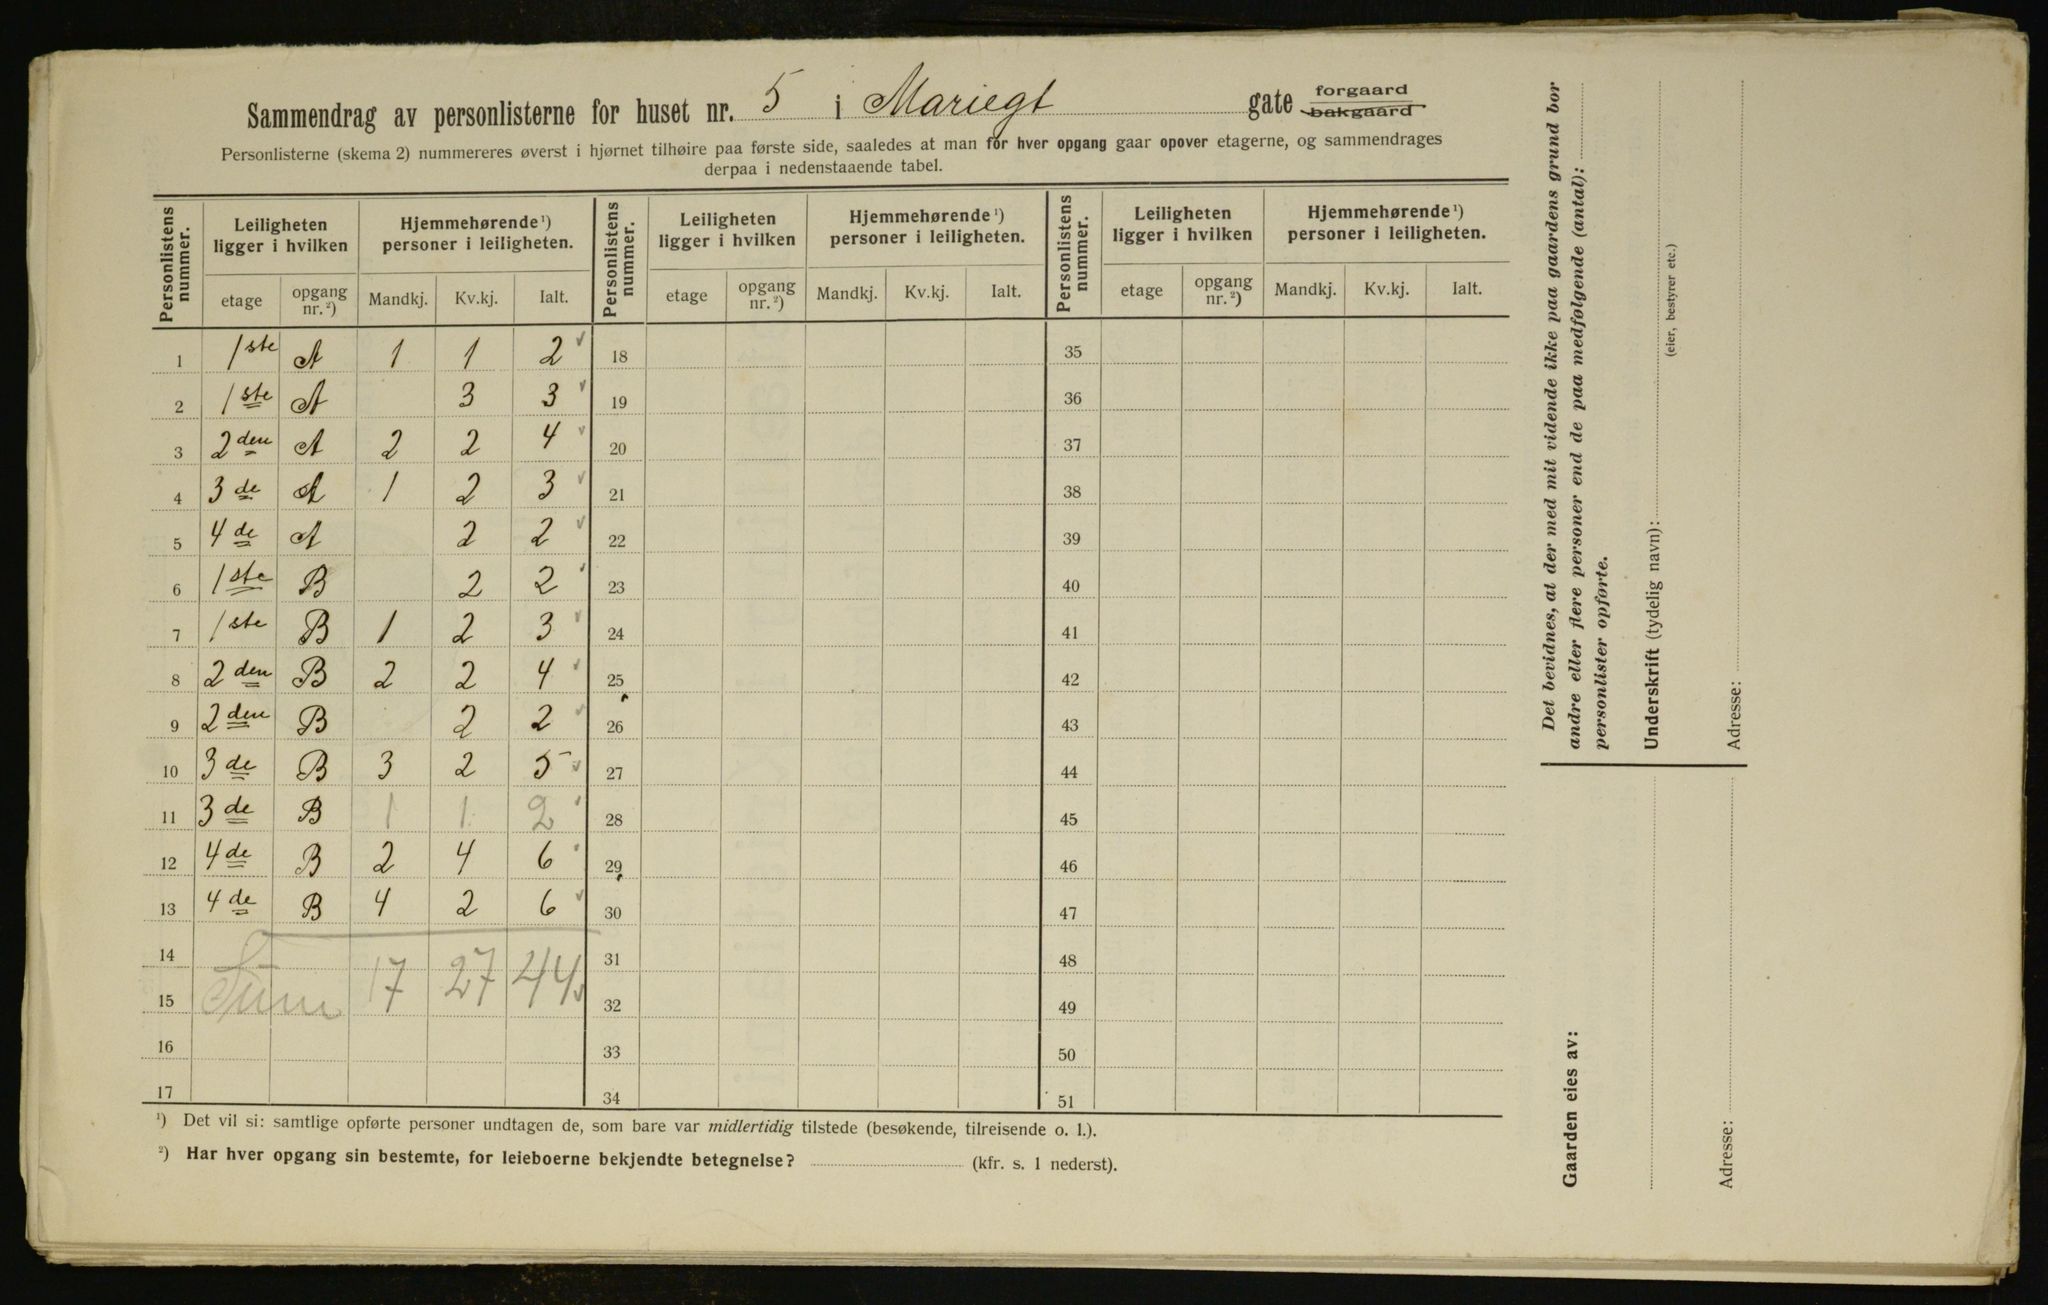 Sammendrag av personlisterne for huset nr. 5 i Mariegt gate forgaard bakgaard
Personlisterne (skema 2) nummereres øverst i hjørnet tilhøire paa første side, saaledes at man for hver opgang gaar opover etagerne, og sammendrages
derpaa i nedenstaaende tabel.
Personlistens nummer. Leiligheten ligger i hvilken Hjemmehørende ¹) personer i leiligheten. Personlistens nummer. Leiligheten ligger i hvilken Hjemmehørende ¹) personer i leiligheten. Personlistens nummer. Leiligheten ligger i hvilken Hjemmehørende ¹) personer i leiligheten.
etage opgang nr. ²) Mandkj. Kv.kj. Ialt. etage opgang nr. ²) Mandkj. Kv.kj. Ialt. etage opgang nr. ²) Mandkj. Kv.kj. Ialt.
1 1ste A 1 1 2 18 35
2 1ste A 3 3 19 36
3 2den A 2 2 4 20 37
4 3de A 1 2 3 21 38
5 4de A 2 2 22 39
6 1ste B 2 2 23 40
7 1ste B 1 2 3 24 41
8 2den B 2 2 4 25 42
9 2den B 2 2 26 43
10 3de B 3 2 5 27 44
11 3de B 1 1 2 28 45
12 4de B 2 4 6 29 46
13 4de B 4 2 6 30 47
14 31 48
15 Sum 17 27 44 32 49
16 33 50
17 34 51
¹) Det vil si: samtlige opførte personer undtagen de, som bare var midlertidig tilstede (besøkende, tilreisende o. l.).
²) Har hver opgang sin bestemte, for leieboerne bekjendte betegnelse? (kfr. s. 1 nederst).
Det bevidnes, at der med mit vidende ikke paa gaardens grund bor
andre eller flere personer end de paa medfølgende (antal):
personlister opførte.
Underskrift (tydelig navn):
(eier, bestyrer etc.)
Adresse:
Gaarden eies av:
Adresse: